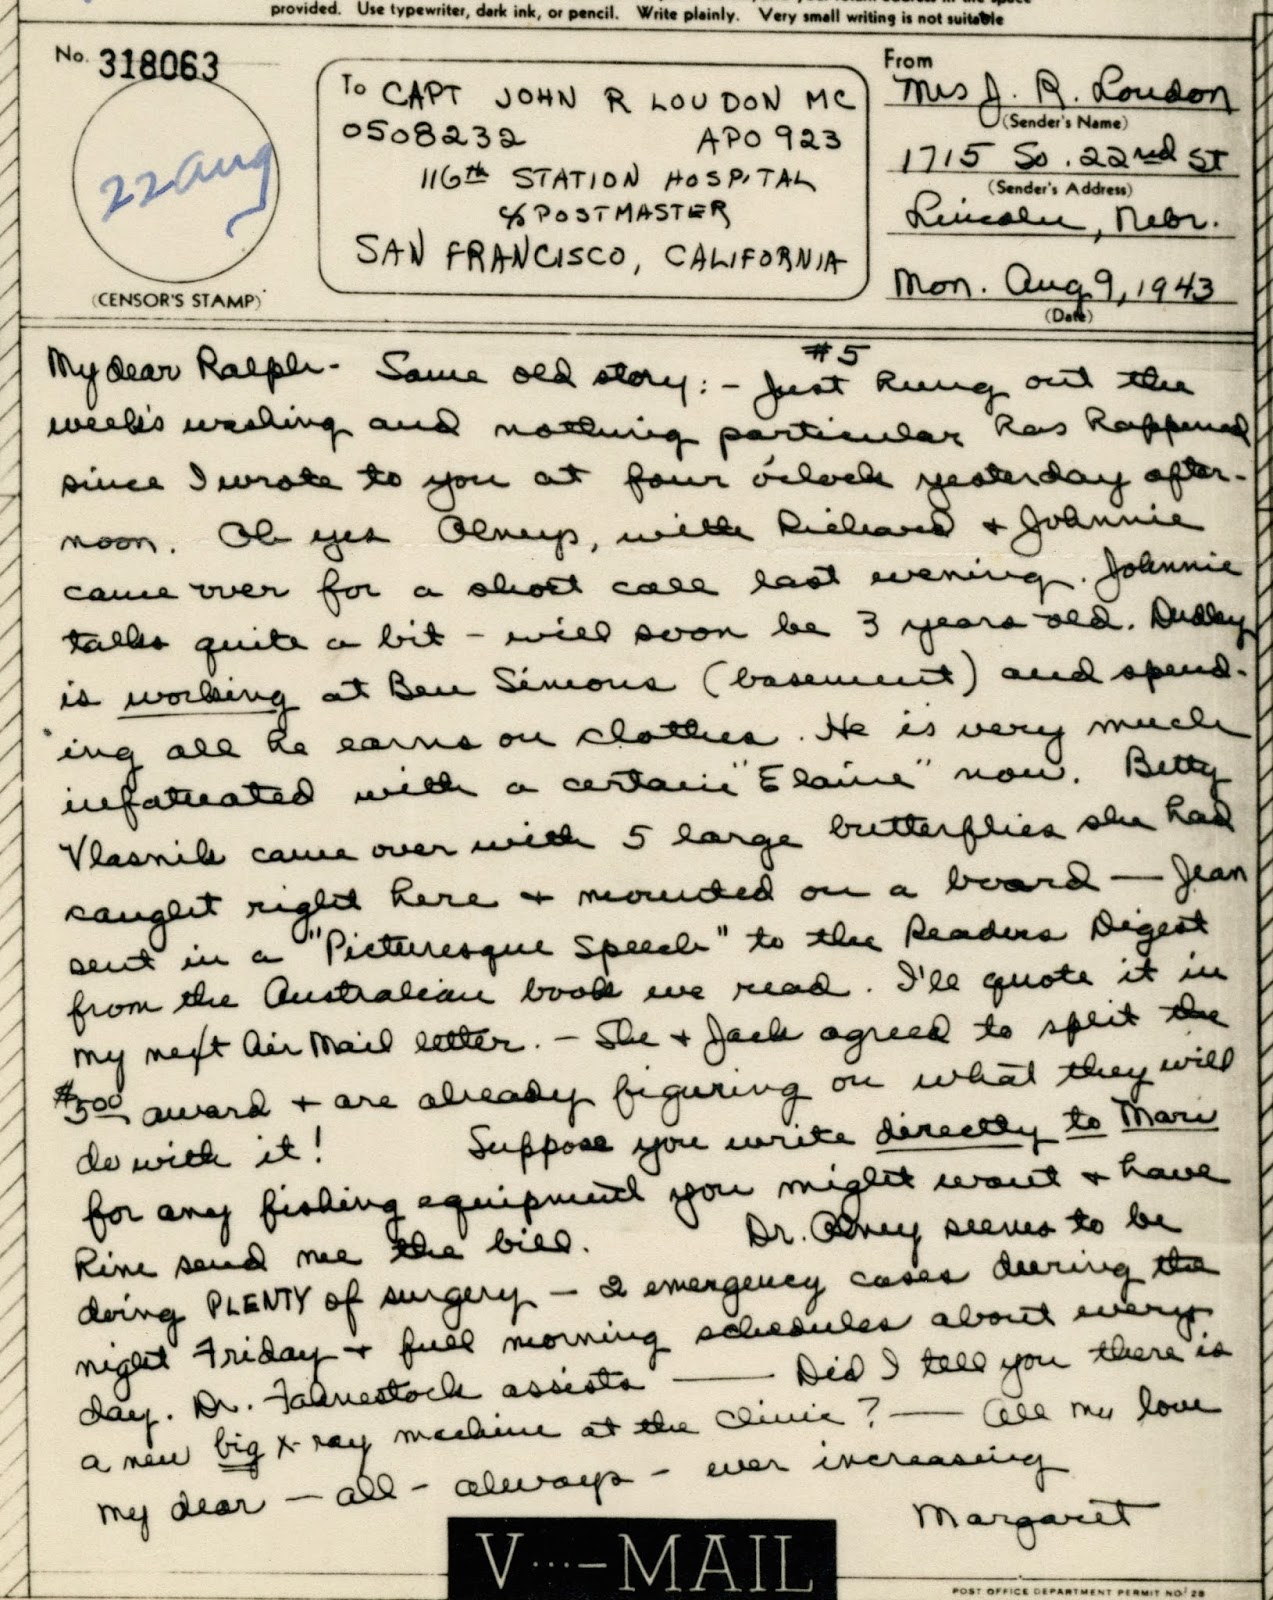 provided. Use typewriter, dark ink, or pencil. Write plainly. Very small writing is not suitable
No. 318063
22 Aug
(CENSOR'S STAMP)
To CAPT JOHN R LOUDON MC
0508232 APO 923
116th STATION HOSPITAL
c/o POSTMASTER
SAN FRANCISCO, CALIFORNIA
From
Mrs J. R. Loudon
(Sender's Name)
1715 So. 22nd St
(Sender's Address)
Lincoln, Nebr.
Mon. Aug 9, 1943
(Date)
#5
My dear Ralph- Same old story:- Just hung out the
week's washing and nothing particular has happened
since I wrote to you at four o'clock yesterday after-
noon. Oh yes Olneys, with Richard & Johnnie
came over for a short call last evening. Johnnie
talks quite a bit - will soon be 3 years old. Dudley
is working at Ben Simons (basement) and spend-
ing all he earns on clothes. He is very much
infatuated with a certain "Elaine" now. Betty
Vlasnik came over with 5 large butterflies she had
caught right here & mounted on a board — Jean
sent in a "Picturesque Speech" to the Readers Digest
from the Australian book we read. I'll quote it in
my next Air Mail letter. - She & Jack agreed to split the
$5.00 award & are already figuring on what they will
do with it! Suppose you write directly to Mari
for any fishing equipment you might want & have
him send me the bill. Dr. Olney seems to be
doing PLENTY of surgery - 2 emergency cases during the
night Friday & full morning schedules about every
day. Dr. Fahnestock assists — Did I tell you there is
a new big x-ray machine at the clinic? — All my love
my dear - all - always - ever increasing
Margaret
V···-MAIL
POST OFFICE DEPARTMENT PERMIT NO. 28